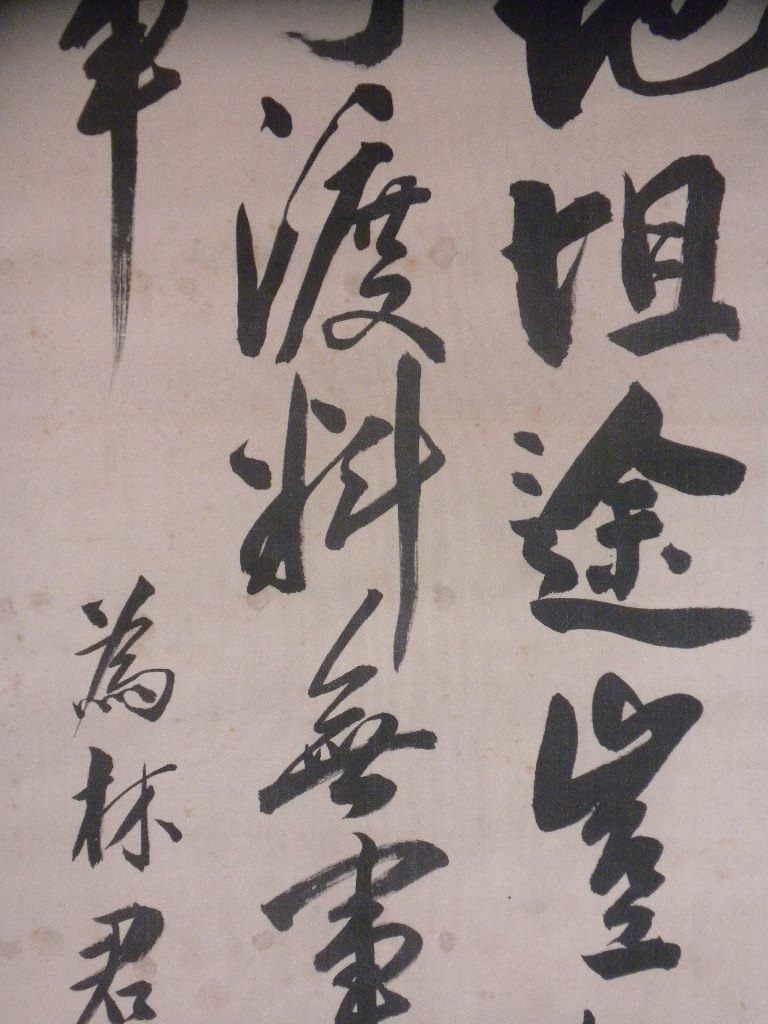 地坦途豈
渡料無
為林君